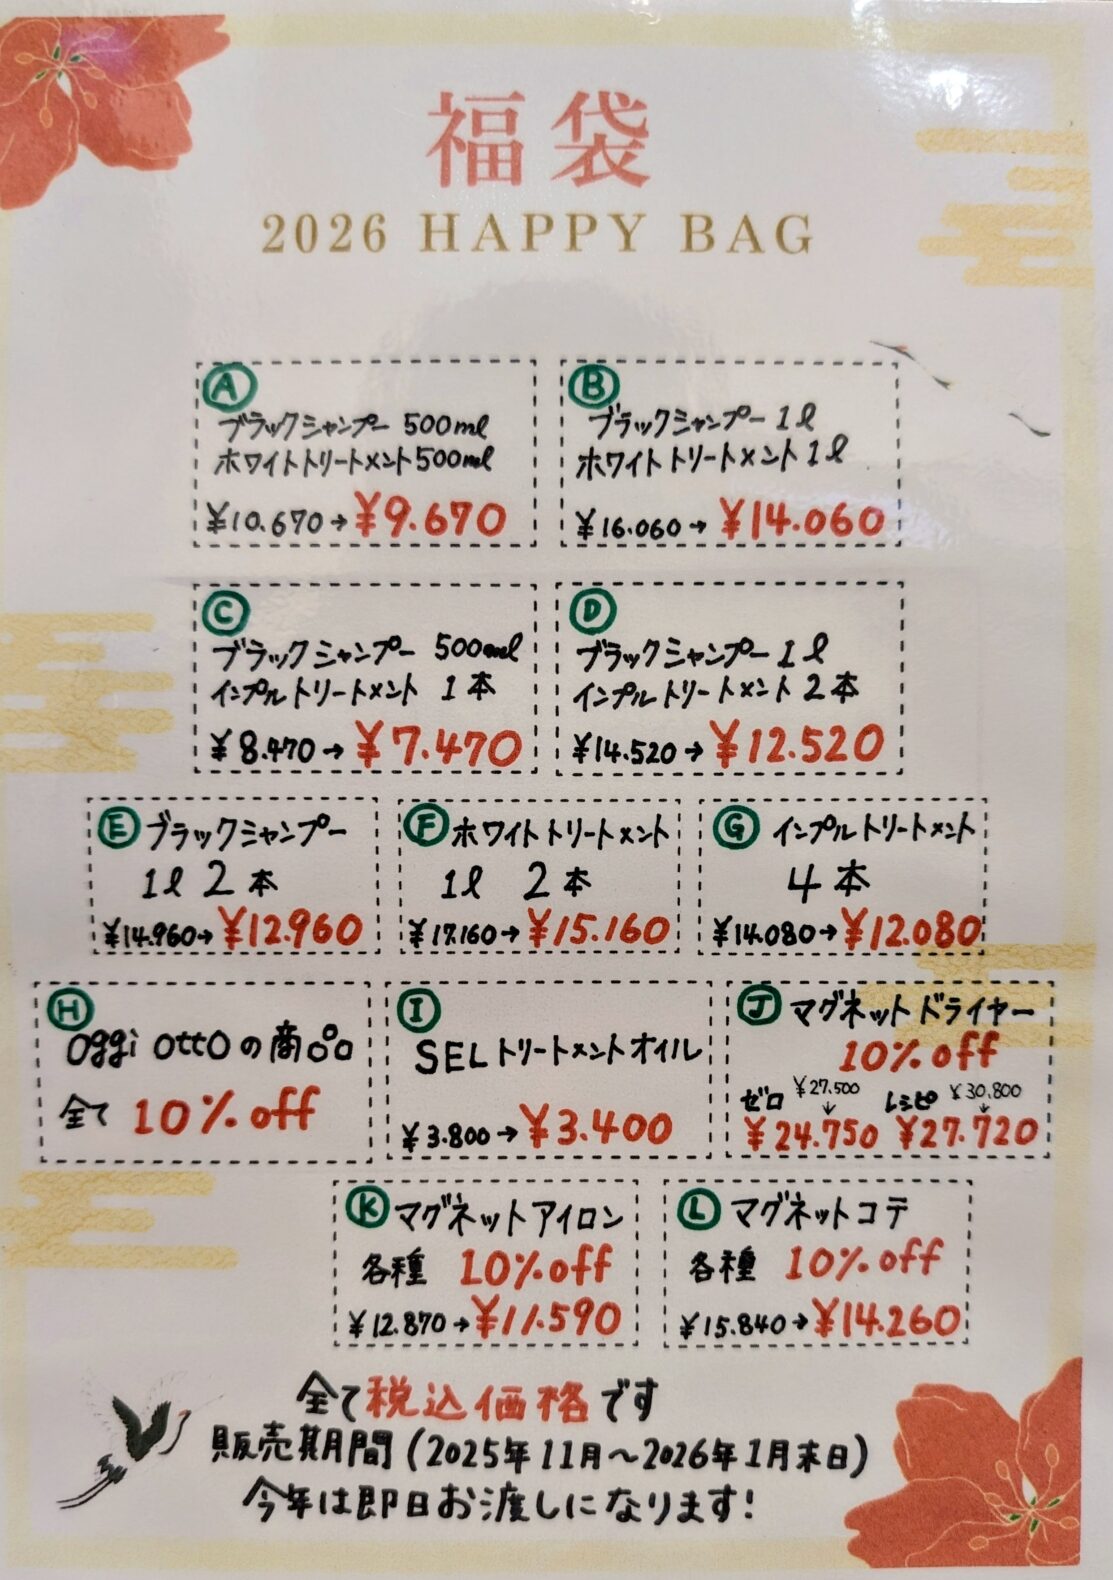 福袋
2026 HAPPY BAG
A
ブラックシャンプー 500ml
ホワイトトリートメント500ml
¥10.670→¥9.670
B
ブラックシャンプー 1l
ホワイトトリートメント 1l
¥16.060→¥14.060
C
ブラックシャンプー 500ml
インプルトリートメント 1本
¥8.470→¥7.470
D
ブラックシャンプー 1l
インプルトリートメント 2本
¥14.520→¥12.520
E ブラックシャンプー
1l 2本
¥14.960→¥12.960
F ホワイトトリートメント
1l 2本
¥17.160→¥15.160
G インプルトリートメント
4本
¥14.080→¥12.080
H
oggi ottoの商品
全て 10%off
I
SELトリートメントオイル
¥3.800→¥3.400
J マグネットドライヤー
10%off
ゼロ ¥27.500 レシピ ¥30.800
↓ ↓
¥24.750 ¥27.720
K マグネットアイロン
各種 10%off
¥12.870→¥11.590
L マグネットコテ
各種 10%off
¥15.840→¥14.260
全て税込価格です
販売期間(2025年11月〜2026年1月末日)
今年は即日お渡しになります!